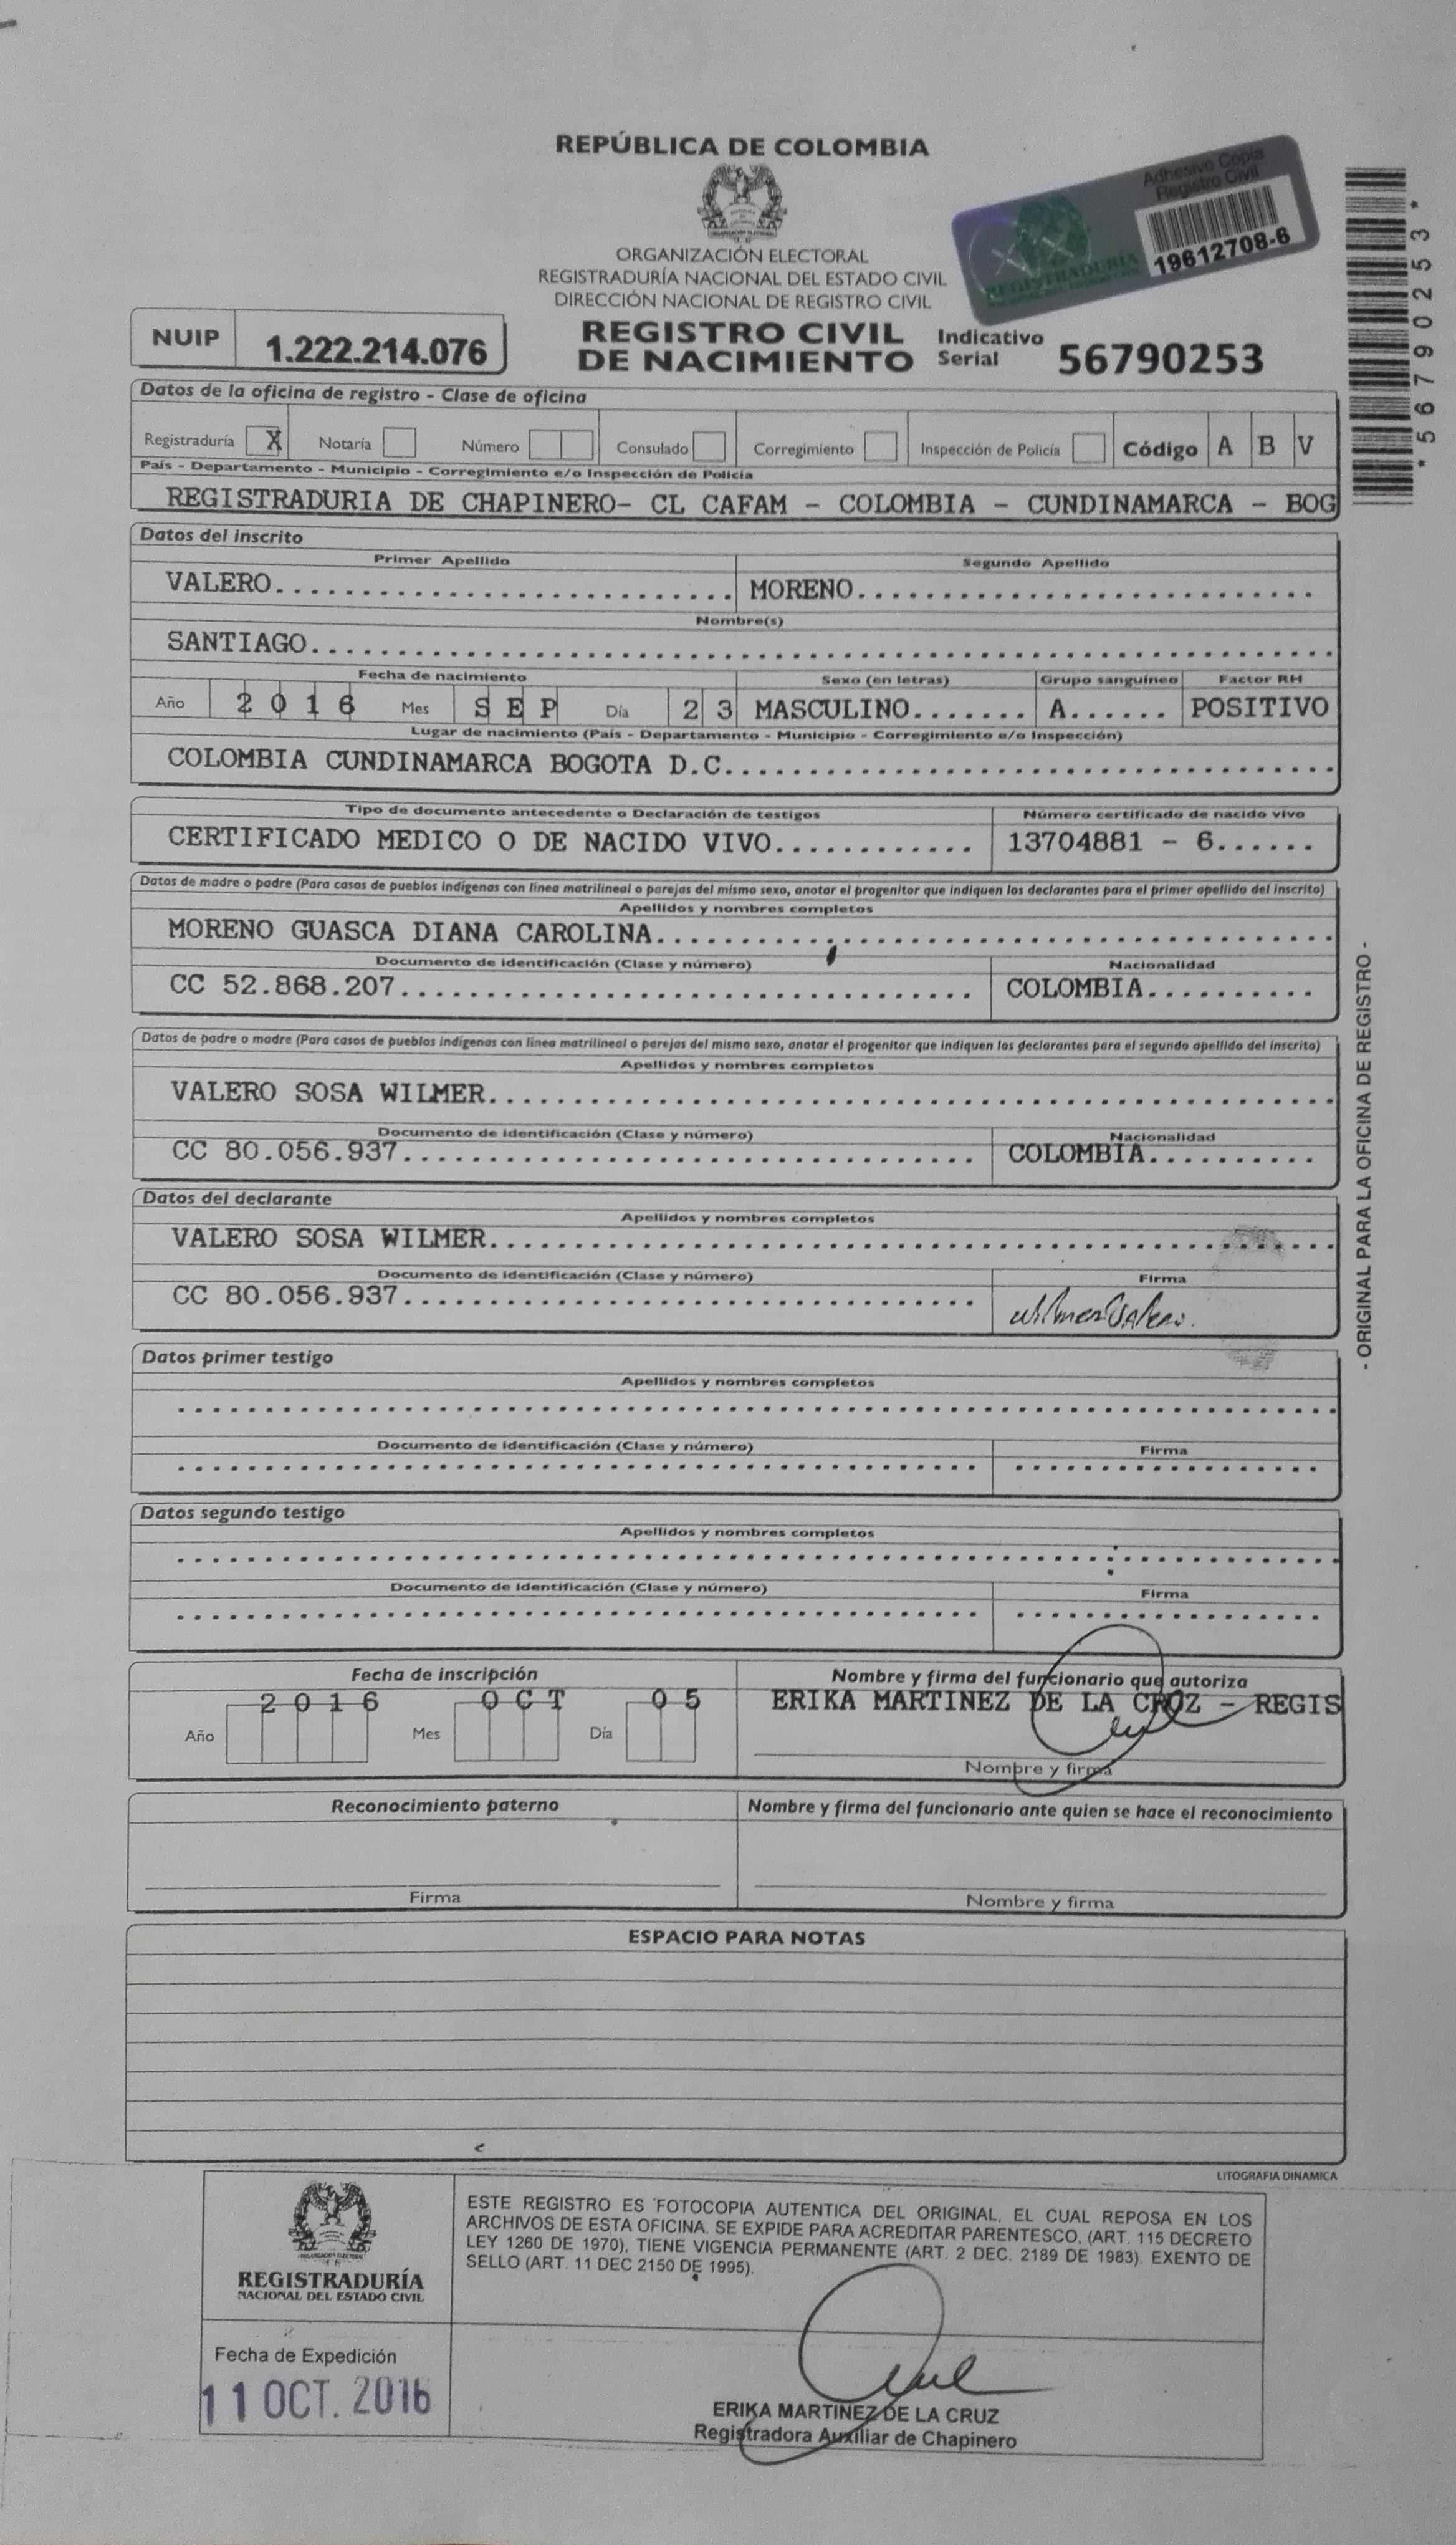 REPÚBLICA DE COLOMBIA
ORGANIZACIÓN ELECTORAL
REGISTRADURÍA NACIONAL DEL ESTADO CIVIL
DIRECCIÓN NACIONAL DE REGISTRO CIVIL
Adhesivo Copia
Registro Civil
REGISTRADURÍA
19612708-6
NUIP 1.222.214.076
REGISTRO CIVIL
DE NACIMIENTO
Indicativo
Serial 56790253
*56790253*
Datos de la oficina de registro - Clase de oficina
Registraduría X Notaría Número Consulado Corregimiento Inspección de Policía Código A B V
País - Departamento - Municipio - Corregimiento e/o Inspección de Policía
REGISTRADURIA DE CHAPINERO- CL CAFAM - COLOMBIA - CUNDINAMARCA - BOG
Datos del inscrito
Primer Apellido Segundo Apellido
VALERO.......................... MORENO..........................
Nombre(s)
SANTIAGO..........................................................
Fecha de nacimiento Sexo (en letras) Grupo sanguíneo Factor RH
Año 2016 Mes SEP Día 23 MASCULINO....... A...... POSITIVO
Lugar de nacimiento (País - Departamento - Municipio - Corregimiento e/o Inspección)
COLOMBIA CUNDINAMARCA BOGOTA D.C...................................
Tipo de documento antecedente o Declaración de testigos Número certificado de nacido vivo
CERTIFICADO MEDICO O DE NACIDO VIVO............ 13704881 - 6......
Datos de madre o padre (Para casos de pueblos indígenas con línea matrilineal o parejas del mismo sexo, anotar el progenitor que indiquen los declarantes para el primer apellido del inscrito)
Apellidos y nombres completos
MORENO GUASCA DIANA CAROLINA.......................................
Documento de identificación (Clase y número) Nacionalidad
CC 52.868.207................................. COLOMBIA..........
Datos de padre o madre (Para casos de pueblos indígenas con línea matrilineal o parejas del mismo sexo, anotar el progenitor que indiquen los declarantes para el segundo apellido del inscrito)
Apellidos y nombres completos
VALERO SOSA WILMER................................................
Documento de identificación (Clase y número) Nacionalidad
CC 80.056.937................................. COLOMBIA..........
Datos del declarante
Apellidos y nombres completos
VALERO SOSA WILMER................................................
Documento de identificación (Clase y número) Firma
CC 80.056.937................................. Wilmer Valero.
Datos primer testigo
Apellidos y nombres completos
Documento de identificación (Clase y número) Firma
Datos segundo testigo
Apellidos y nombres completos
Documento de identificación (Clase y número) Firma
Fecha de inscripción Nombre y firma del funcionario que autoriza
Año 2016 Mes OCT Día 05 ERIKA MARTINEZ DE LA CROZ - REGIS
Nombre y firma
Reconocimiento paterno Nombre y firma del funcionario ante quien se hace el reconocimiento
Firma Nombre y firma
ESPACIO PARA NOTAS
- ORIGINAL PARA LA OFICINA DE REGISTRO -
LITOGRAFIA DINAMICA
REGISTRADURÍA
NACIONAL DEL ESTADO CIVIL
ESTE REGISTRO ES FOTOCOPIA AUTENTICA DEL ORIGINAL, EL CUAL REPOSA EN LOS
ARCHIVOS DE ESTA OFICINA. SE EXPIDE PARA ACREDITAR PARENTESCO, (ART. 115 DECRETO
LEY 1260 DE 1970), TIENE VIGENCIA PERMANENTE (ART. 2 DEC. 2189 DE 1983). EXENTO DE
SELLO (ART. 11 DEC 2150 DE 1995).
Fecha de Expedición
11 OCT. 2016
ERIKA MARTINEZ DE LA CRUZ
Registradora Auxiliar de Chapinero